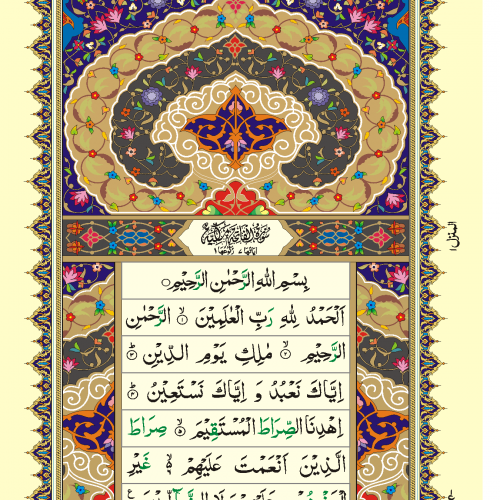 سُورَةُ الْفَاتِحَةِ مَكِّيَّةٌ
اٰيَاتُهَا ۷ رُكُوْعُهَا ۱
بِسْمِ اللهِ الرَّحْمٰنِ الرَّحِيْمِ
اَلْحَمْدُ لِلّٰهِ رَبِّ الْعٰلَمِيْنَ ۱ الرَّحْمٰنِ
الرَّحِيْمِ ۲ مٰلِكِ يَوْمِ الدِّيْنِ ۳
اِيَّاكَ نَعْبُدُ وَ اِيَّاكَ نَسْتَعِيْنُ ۴
اِهْدِنَا الصِّرَاطَ الْمُسْتَقِيْمَ ۵ صِرَاطَ
الَّذِيْنَ اَنْعَمْتَ عَلَيْهِمْ ۶ غَيْرِ
المنزل ۱